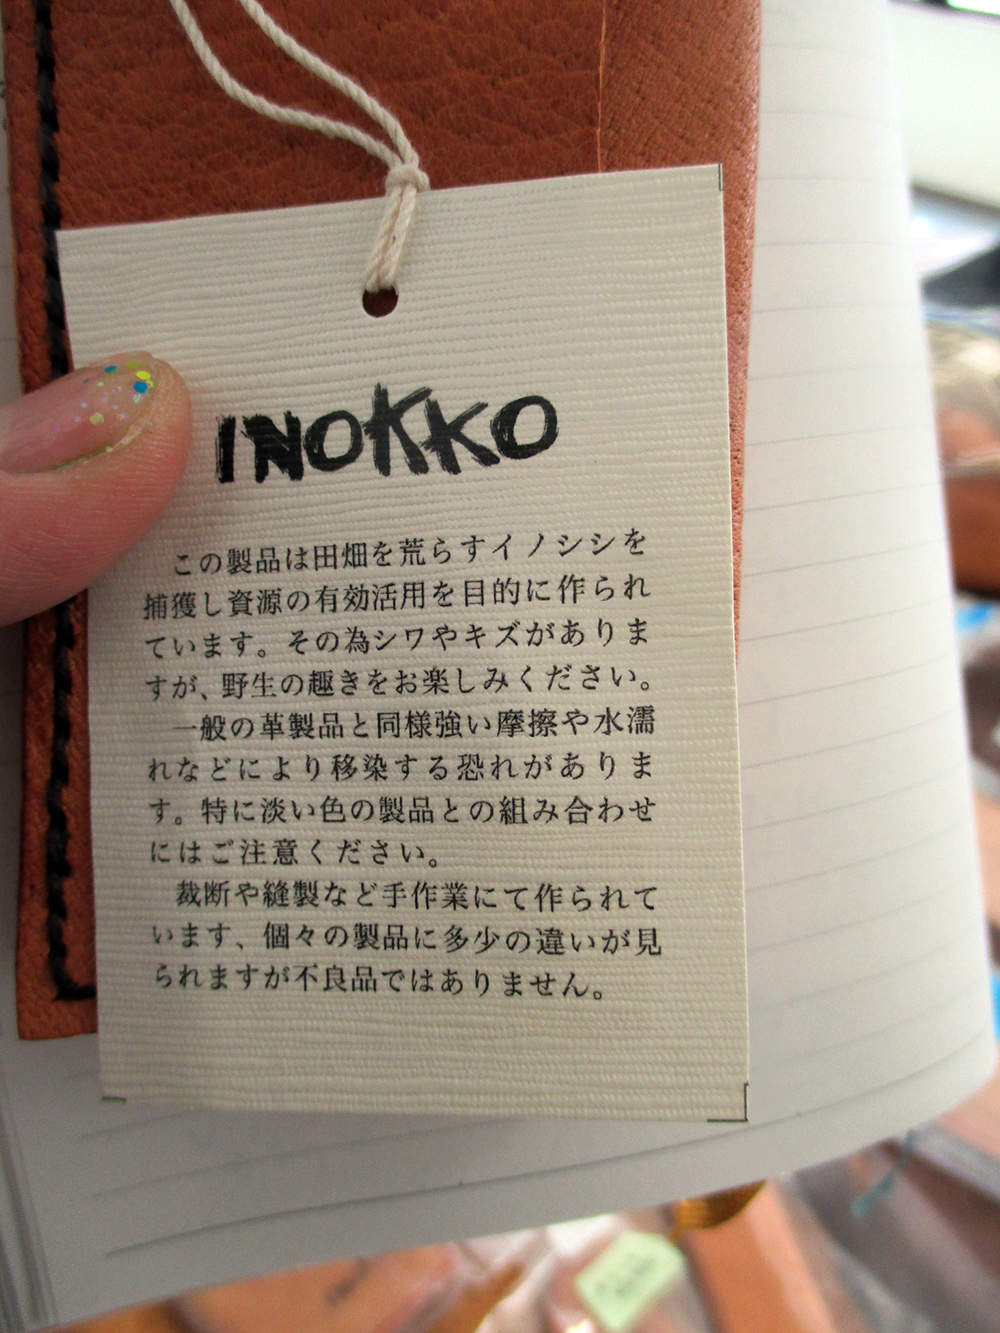 INOKKO
この製品は田畑を荒らすイノシシを
捕獲し資源の有効活用を目的に作られ
ています。その為シワやキズがありま
すが、野生の趣きをお楽しみください。
一般の革製品と同様強い摩擦や水濡
れなどにより移染する恐れがありま
す。特に淡い色の製品との組み合わせ
にはご注意ください。
裁断や縫製など手作業にて作られて
います、個々の製品に多少の違いが見
られますが不良品ではありません。